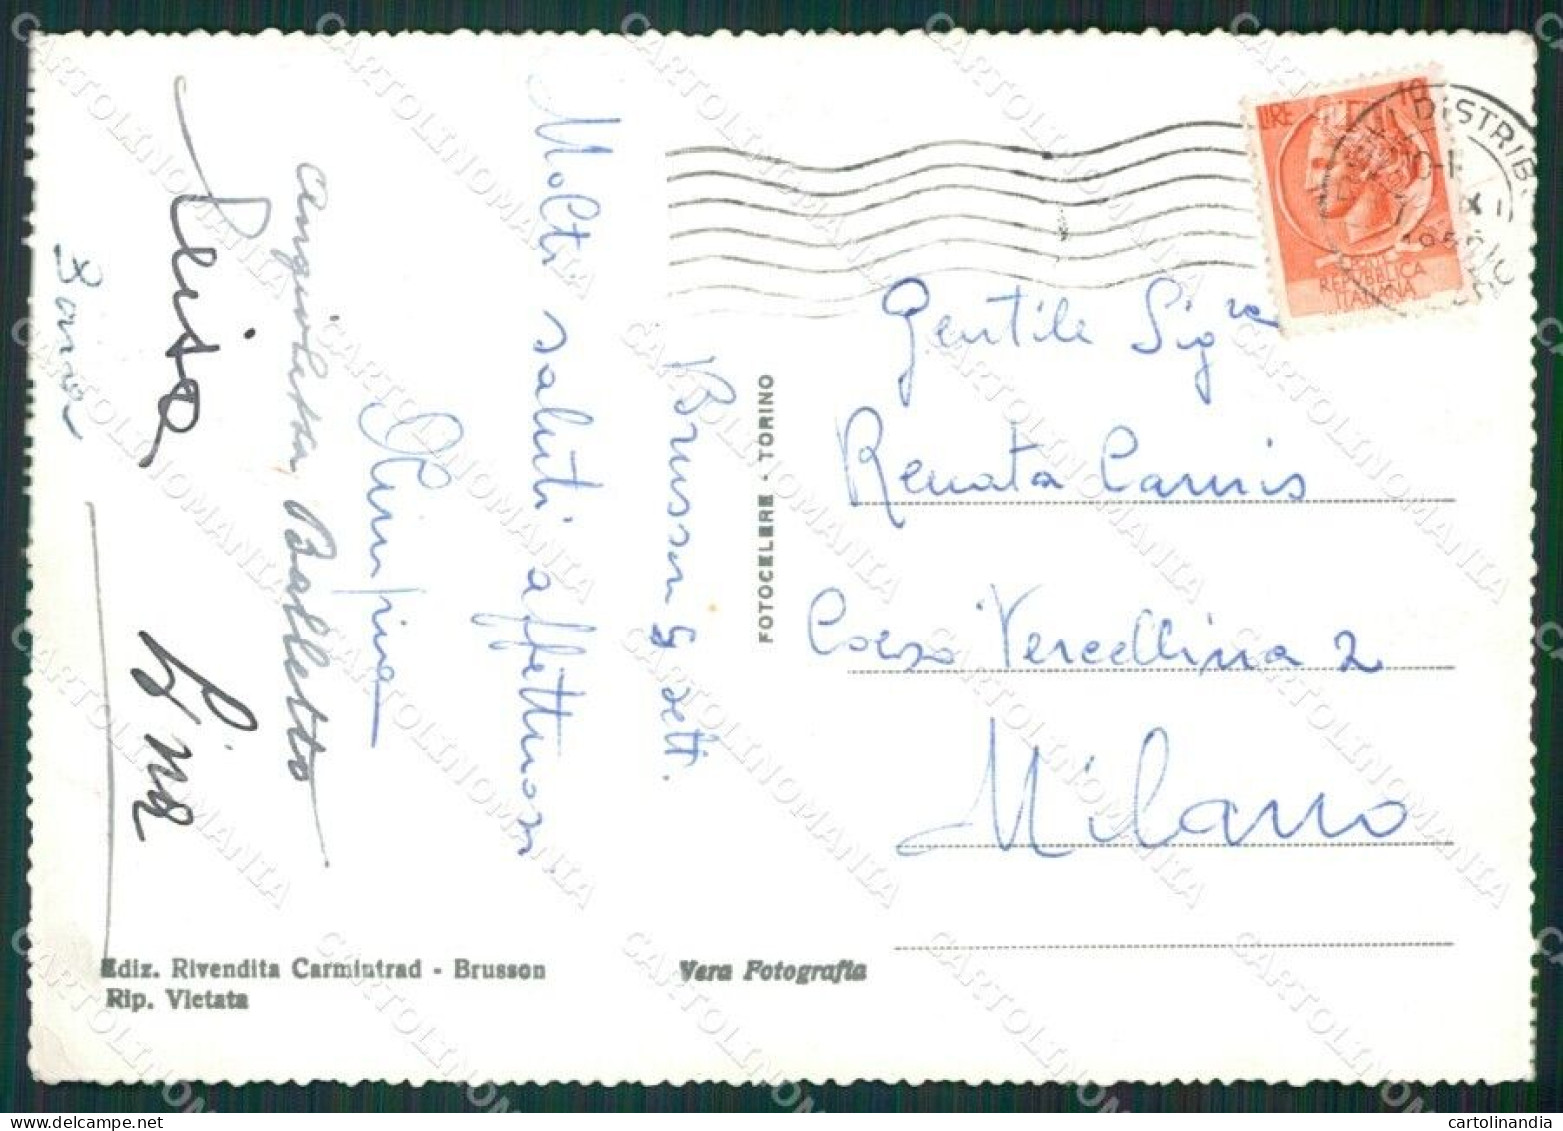 Molti saluti affettuosi
Brusson 9 sett.
Angioletta Balletto
Lina
FOTOCELERE - TORINO
LIRE 10
REPUBBLICA
ITALIANA
DISTRIB
Gentile Sig.ra
Renata Carnis
Corso Vercellina 2
Milano
Ediz. Rivendita Carmintrad - Brusson
Rip. Vietata
Vera Fotografia
CARTOLINOMANIA
cartolinandia